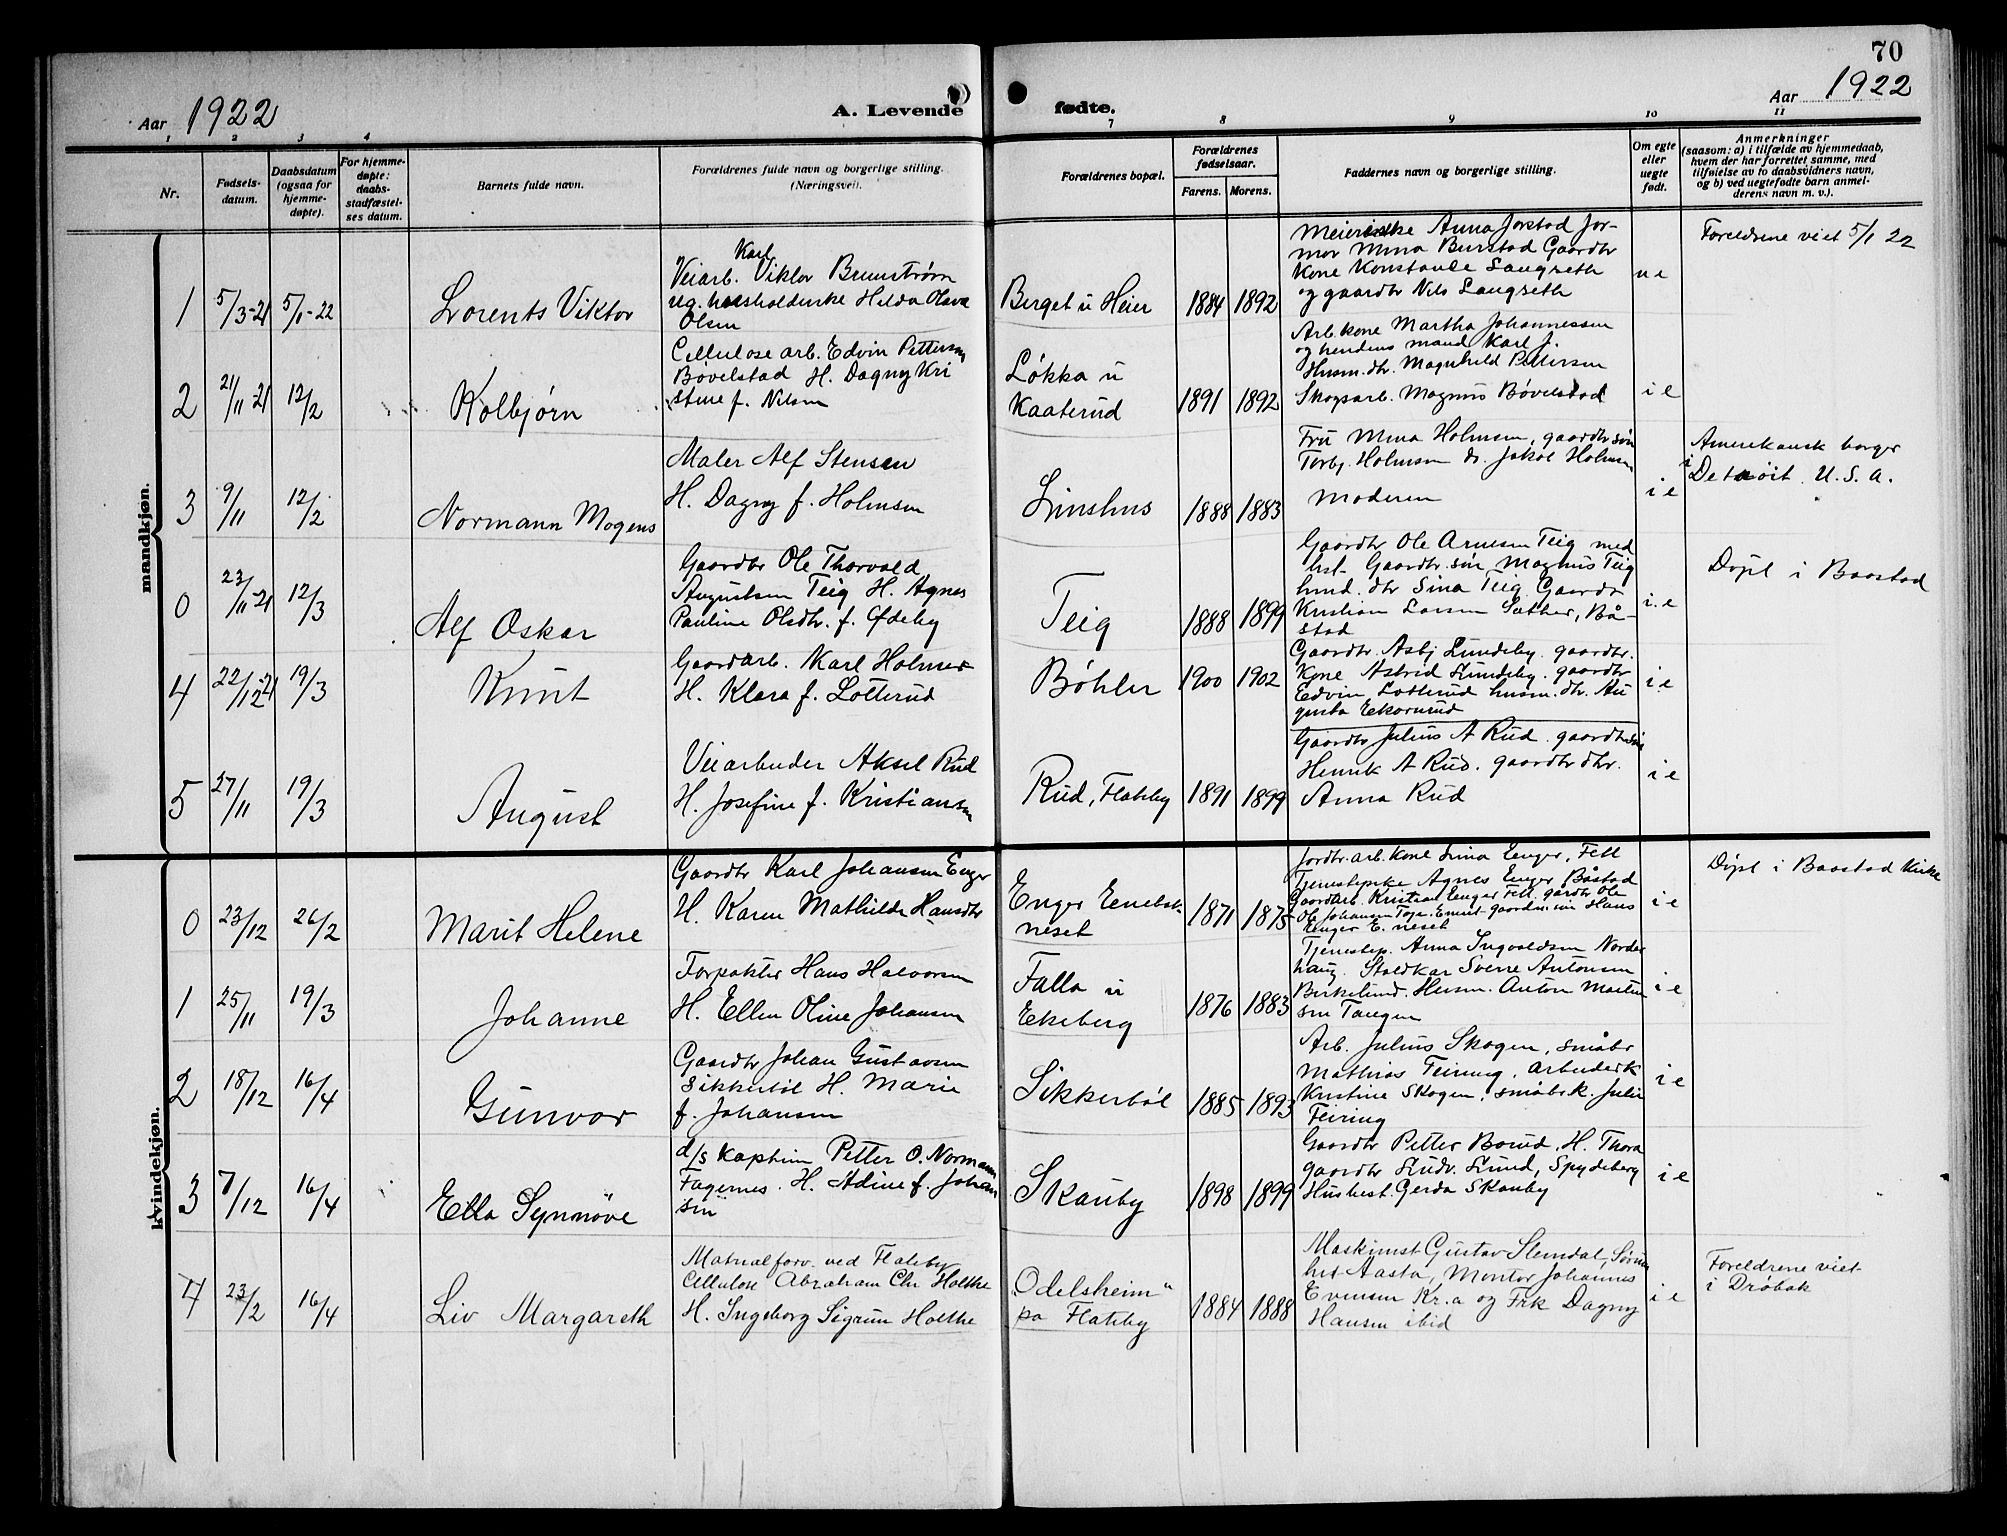 70
Aar 1922
A. Levende fødte.
Aar 1922
1 2 3 4 7 8 9 10 11
Nr.
Fødsels-
datum.
Daabsdatum
(ogsaa for
hjemme-
døpte).
For hjemme-
døpte:
daabs-
stadfæstel-
ses datum.
Barnets fulde navn.
Forældrenes fulde navn og borgerlige stilling.
(Næringsvei).
Forældrenes bopæl.
Forældrenes
fødselsaar.
Farens. Morens.
Faddernes navn og borgerlige stilling.
Om egte
eller
uegte
født.
Anmerkninger
(saasom: a) i tilfælde av hjemmedaab,
hvem der har forrettet samme, med
tilføielse av to daabsvidners navn,
og b) ved uegtefødte barn anmel-
derens navn m. v.).
mandkjøn.
1 5/3-21 5/1-22 Lorents Viktor
Karl
Veiarb. Viktor Brunstrøm
ug. husholderske Hilda Olava
Olsen
Berget u Heier 1884 1892
Meierske Anna Jorstad Jor-
mor Mina Burstad Gaardbr
Kone Konstanse Langseth
og gaardbr Nils Langseth
u e
Foreldrene viet 5/1 22
2 21/11-21 12/2 Kolbjørn
Cellulose arb. Edvin Pettersen
Bøvelstad H. Dagny Kri
stine f. Nilsen
Løkka u
Kaaterud
1891 1892
Arb. kone Martha Johannessen
og hendens mand Karl J.
Husm. dtr. Magnhild Pettersen
Skogsarb. Magnus Bøvelstad
i e
3 9/11 12/2 Normann Mogens
Maler Alf Stensen
H. Dagny f. Holmsen
Linshus 1888 1883
Fru Mina Holmsen, gaardbr søn
Torbj. Holmsen do. Jakob Holmsen
Moderen
i e
Amerikansk borger
i Detroit U. S. A.
0 23/11-21 12/3 Alf Oskar
Gaardbr Ole Thorvald
Augustsen Teig H. Agnes
Pauline Olsdtr. f. Ødeby
Teig 1888 1899
Gaardbr Ole Arnesen Teig med
hst. Gaardbr. søn Magnus Teig
hmd. dtr Sina Teig Gaardbr
Kristian Larsen Sæther, Bå-
stad
i. e
Døpt i Baastad
4 22/12-21 19/3 Knut
Gaardarb. Karl Holmer
H. Klara f. Lotterud
Bøhler 1900 1902
Gaardbr. Asbj Lundeby. gaardbr.
Kone Astrid Lundeby. gaardbr
Edvin Lotterud husm. dtr. Au
gusta Ekornrud
i e
5 27/11 19/3 August
Veiarbeider Aksel Rud
H. Josefine f. Kristiansen
Rud, Flateby 1891 1899
Gaardbr Julius A Rud. gaardbr søn
Henrik A Rud. gaardbr dtr.
Anna Rud
i e
kvindekjøn.
0 23/12 26/2 Marit Helene
Gaardbr Karl Johansen Enger
H. Karen Mathilde Hansdtr
Enger Enebak-
neset
1871 1875
Jordbr. arb. kone Lina Enger, Fett
Tjenestepike Agnes Enger Båstad
Gaardarb. Kristian Enger Fett. gårdbr Ole
Enger E. neset
i e
Døpt i Baastad Kirke
1 25/11 19/3 Johanne
Forpakter Hans Halvorsen
H. Ellen Oline Johansen
Falla u
Ekeberg
1876 1883
Tjenestep. Anna Ingvaldsen Norder
haug. Staldkar Sverre Antonsen
Birkelund. Husm. Anton Martin
sen Tangen
i e
2 18/12 16/4 Gunvor
Gaardbr Johan Gustavsen
Sikkerbøl H. Marie
f. Johansen
Sikkerbøl 1885 1893
Arb. Julius Skogen, småbr
Mathias Feiring, arbeiderk
Kristine Skogen, småbr. k. Julie
Feiring
i e
3 7/12 16/4 Ella Synnøve
d/s kaptein Petter O. Normann
Fagernes. H. Adine f. Johan
sen
Skauby 1898 1899
Gaardbr Petter Borud. H. Thora
gaardbr Ludv. Lund, Spydeberg
Husbest. Gerda Skauby
i e
4 23/2 16/4 Liv Margareth
Matrialforv. ved Flateby
Cellulose Abraham Chr Holthe
H. Ingeborg Sigrun Holthe
"Odelsheim"
pa Flateby
1884 1888
Maskinist Gustav Stemdal,
Aasta, Montør Johannes
Evensen Kr.a og Frk Dagny
Hansen ibid
i e
Foreldrene viet
i Drøbak